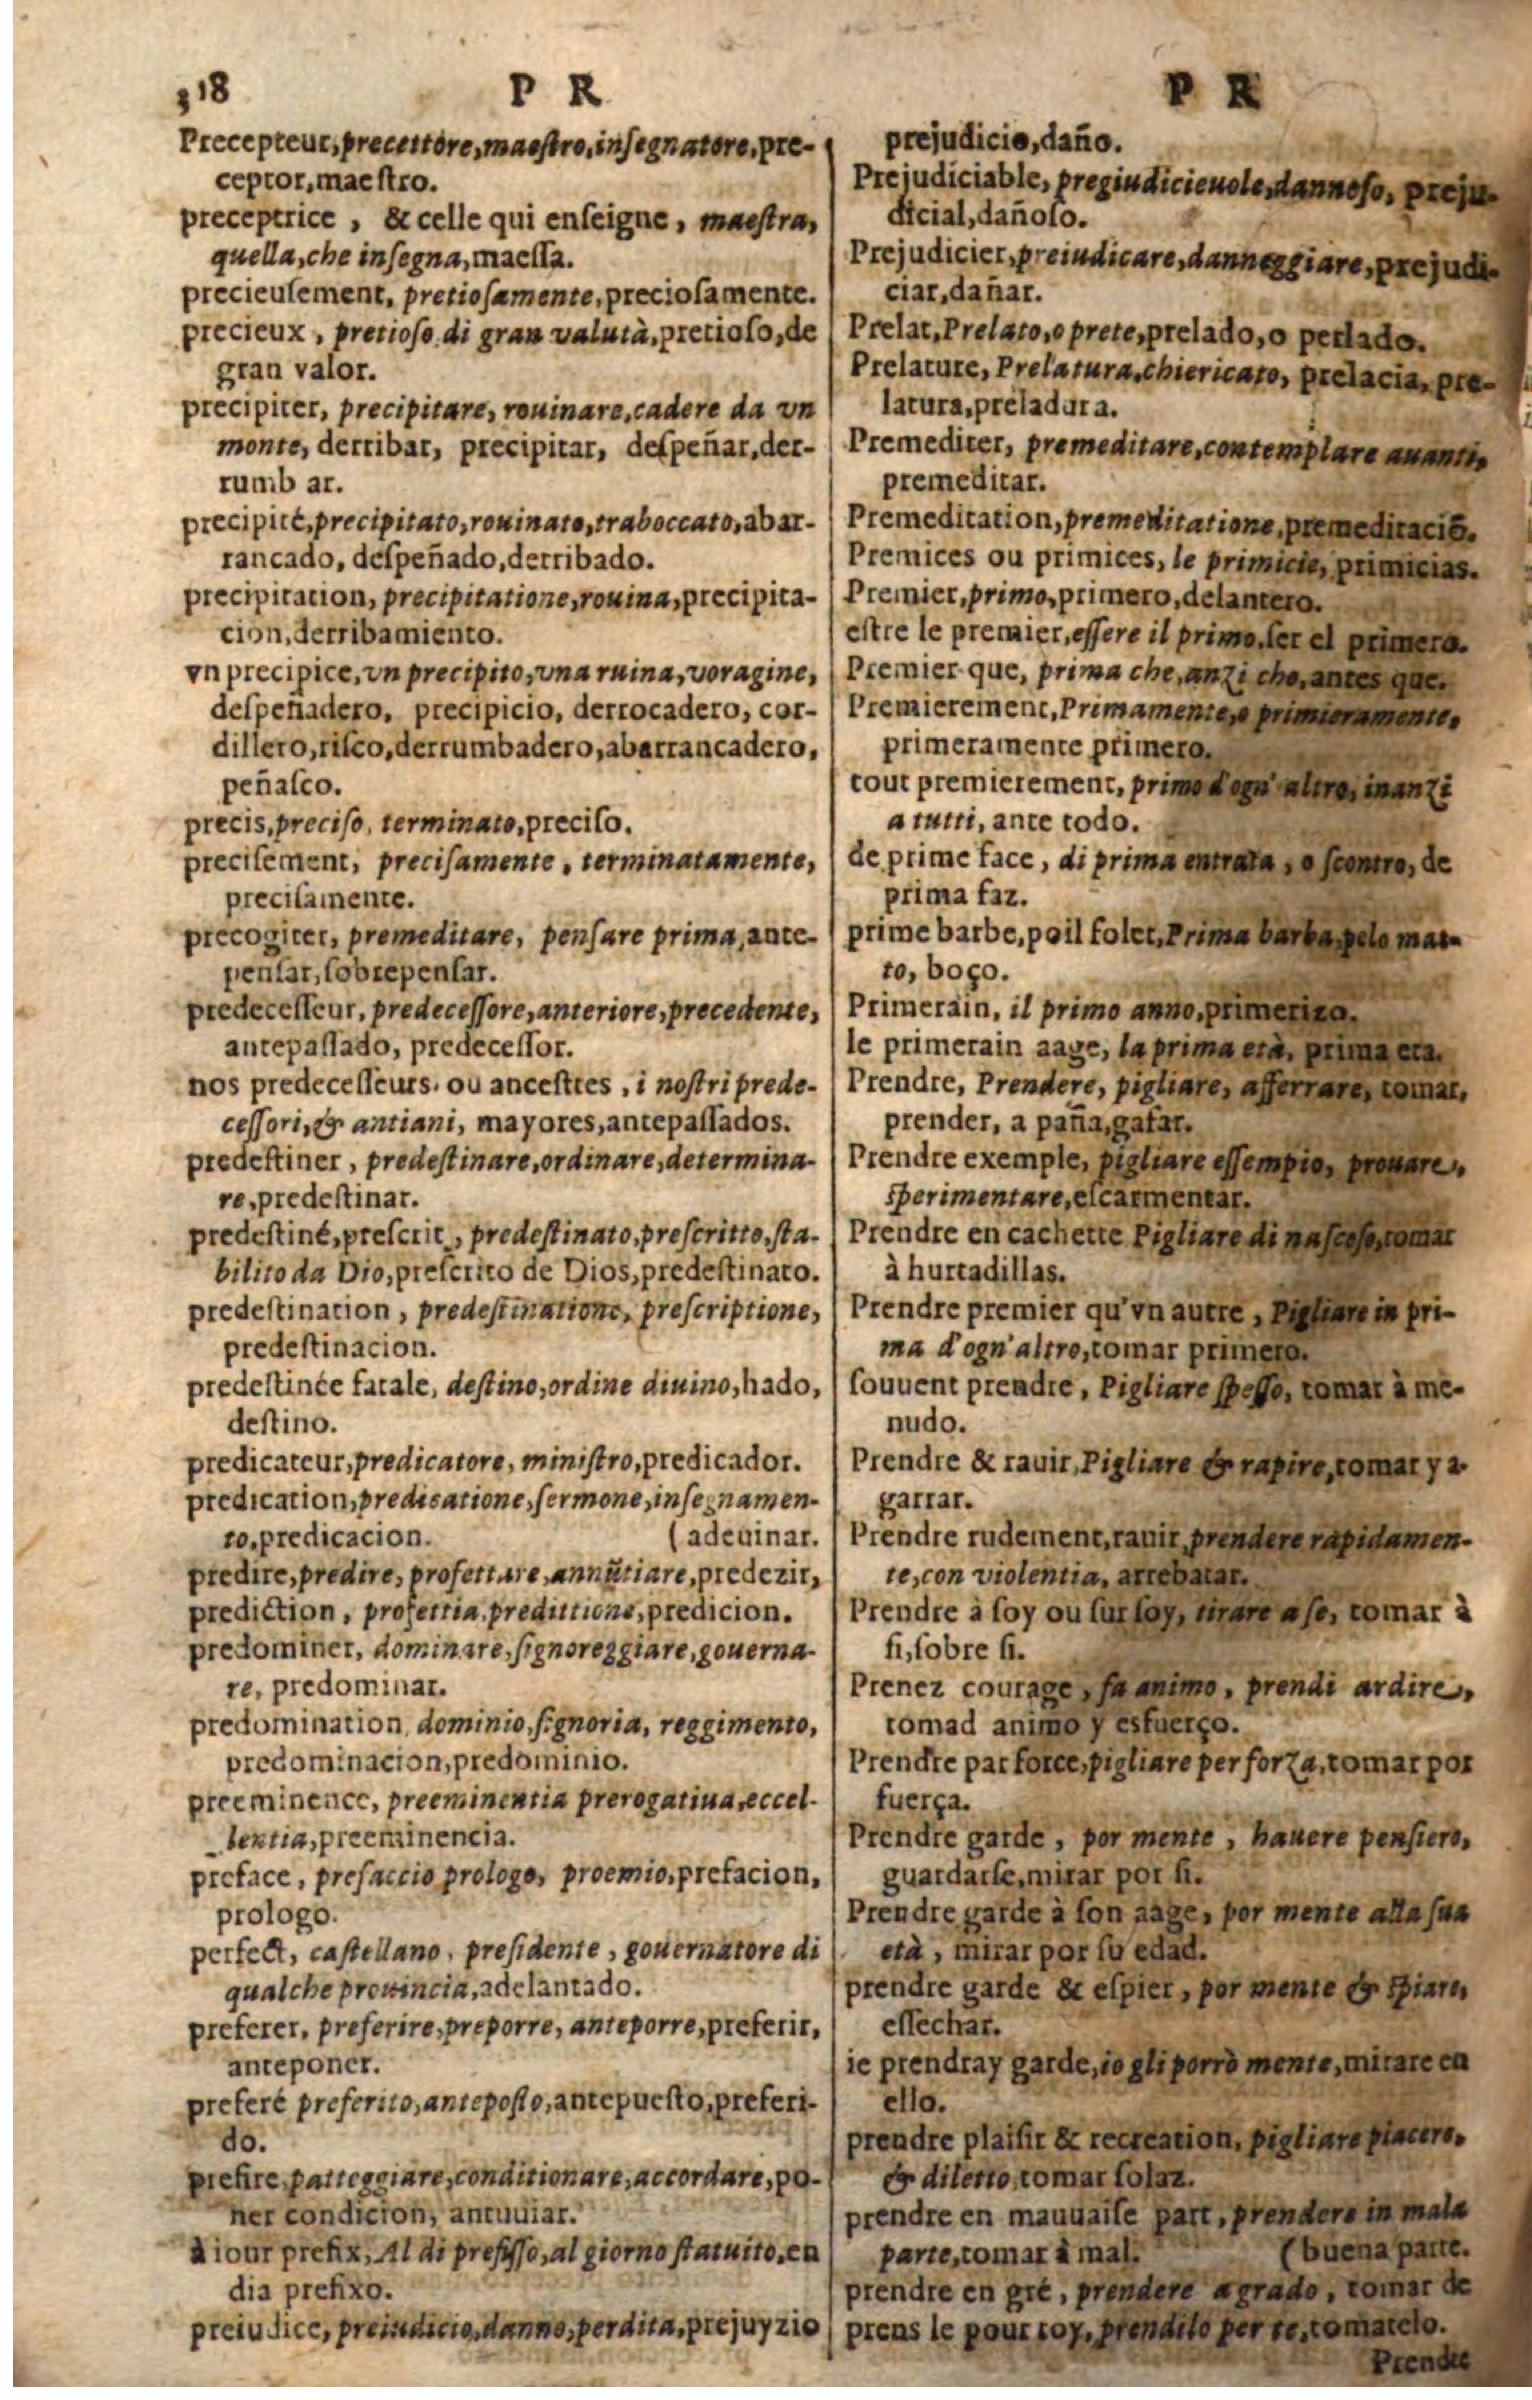 318 P R
Precepteur, precettore, maeſtro, inſegnatore, pre-
ceptor, mae ſtro.
preceptrice, & celle qui enſeigne, maeſtra,
quella, che inſegna, maeſſa.
precieuſement, pretioſamente, precioſamente.
precieux, pretioſo di gran valutà, pretioſo, de
gran valor.
precipiter, precipitare, rouinare, cadere da vn
monte, derribar, precipitar, deſpeñar, der-
rumb ar.
precipité, precipitato, rouinato, traboccato, abar-
rancado, deſpeñado, derribado.
precipitation, precipitatione, rouina, precipita-
cion, derribamiento.
vn precipice, vn precipito, vna ruina, voragine,
deſpeñadero, precipicio, derrocadero, cor-
dillero, riſco, derrumbadero, abarrancadero,
peñaſco.
precis, preciſo, terminato, preciſo.
preciſement, preciſamente, terminatamente,
preciſamente.
precogiter, premeditare, penſare prima, ante-
penſar, ſobrepenſar.
predeceſſeur, predeceſſore, anteriore, precedente,
antepaſſado, predeceſſor.
nos predeceſſeurs, ou anceſtres, i noſtri prede-
ceſſori, & antiani, mayores, antepaſſados.
predeſtiner, predeſtinare, ordinare, determina-
re, predeſtinar.
predeſtiné, preſcrit, predeſtinato, preſcritto, ſta-
bilito da Dio, preſcrito de Dios, predeſtinato.
predeſtination, predeſtinatione, preſcriptione,
predeſtinacion.
predeſtinée fatale, deſtino, ordine diuino, hado,
deſtino.
predicateur, predicatore, miniſtro, predicador.
predication, predicatione, ſermone, inſegnamen-
to, predicacion. (adeuinar.
predire, predire, profettare, annũtiare, predezir,
prediction, profettia, predittione, predicion.
predominer, dominare, ſignoreggiare, gouerna-
re, predominar.
predomination, dominio, ſignoria, reggimento,
predominacion, predominio.
preeminence, preeminentia prerogatiua, eccel-
lentia, preeminencia.
preface, prefaccio prologo, proemio, prefacion,
prologo.
perfect, caſtellano, preſidente, gouernatore di
qualche prouincia, adelantado.
preferer, preferire, preporre, anteporre, preferir,
anteponer.
preferé preferito, antepoſto, antepueſto, preferi-
do.
prefire, patteggiare, conditionare, accordare, po-
ner condicion, antuuiar.
à iour prefix, Al di prefiſſo, al giorno ſtatuito, en
dia prefixo.
preiudice, preiudicio, danno, perdita, prejuyzio
P R
prejudicio, daño.
Prejudiciable, pregiudicieuole, dannoſo, preju-
dicial, dañoſo.
Prejudicier, preiudicare, danneggiare, prejudi-
ciar, dañar.
Prelat, Prelato, o prete, prelado, o perlado.
Prelature, Prelatura, chiericato, prelacia, pre-
latura, preladura.
Premediter, premeditare, contemplare auanti,
premeditar.
Premeditation, premeditatione, premeditaciõ.
Premices ou primices, le primicie, primicias.
Premier, primo, primero, delantero.
eſtre le premier, eſſere il primo, ſer el primero.
Premier que, prima che, anzi che, antes que.
Premierement, Primamente, o primieramente,
primeramente primero.
tout premierement, primo d'ogn' altro, inanzi
a tutti, ante todo.
de prime face, di prima entrata, o ſcontro, de
prima faz.
prime barbe, poil folet, Prima barba, pelo mat-
to, boço.
Primerain, il primo anno, primerizo.
le primerain aage, la prima età, prima era.
Prendre, Prendere, pigliare, afferrare, tomar,
prender, a paña, gafar.
Prendre exemple, pigliare eſſempio, prouare,
ſperimentare, eſcarmentar.
Prendre en cachette Pigliare di naſcoſo, tomar
à hurtadillas.
Prendre premier qu'vn autre, Pigliare in pri-
ma d'ogn'altro, tomar primero.
ſouuent prendre, Pigliare ſpeſſo, tomar à me-
nudo.
Prendre & rauir, Pigliare & rapire, tomar y a-
garrar.
Prendre rudement, rauir, prendere rapidamen-
te, con violentia, arrebatar.
Prendre à ſoy ou ſur ſoy, tirare a ſe, tomar à
ſi, ſobre ſi.
Prenez courage, fa animo, prendi ardire,
tomad animo y esfuerço.
Prendre par force, pigliare per forza, tomar por
fuerça.
Prendre garde, por mente, hauere penſiero,
guardarſe, mirar por ſi.
Prendre garde à ſon aage, por mente alla ſua
età, mirar por ſu edad.
prendre garde & eſpier, por mente & ſpiare,
eſſechar.
ie prendray garde, io gli porrò mente, mirare en
ello.
prendre plaiſir & recreation, pigliare piacere,
& diletto, tomar ſolaz.
prendre en mauuaiſe part, prendere in mala
parte, tomar à mal. (buena parte.
prendre en gré, prendere a grado, tomar de
prens le pour toy, prendilo per te, tomatelo.
Prendre